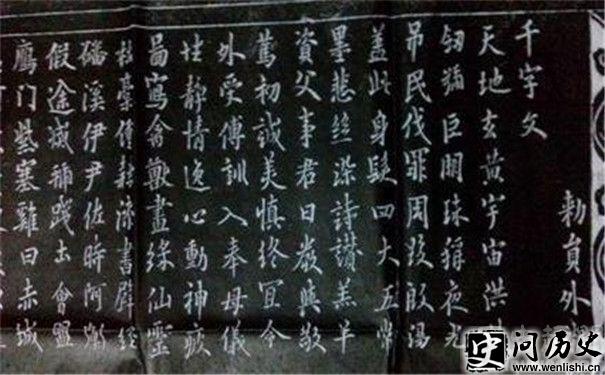 勅員外
千字文
天地玄黄宇宙洪
劍號巨闕珠稱夜光
吊民伐罪周發殷湯
盖此身髮四大五常
墨悲絲染詩讃羔羊
資父事君曰嚴與敬
篤初誠美慎終宜令
外受傅訓入奉母儀
性靜情逸心動神疲
圖寫禽獸畫綵仙靈
杜稾鍾隸漆書壁經
磻溪伊尹佐時阿衡
假途滅虢踐土會盟
鴈門紫塞雞田赤城
问历史
www.wenlishi.cn